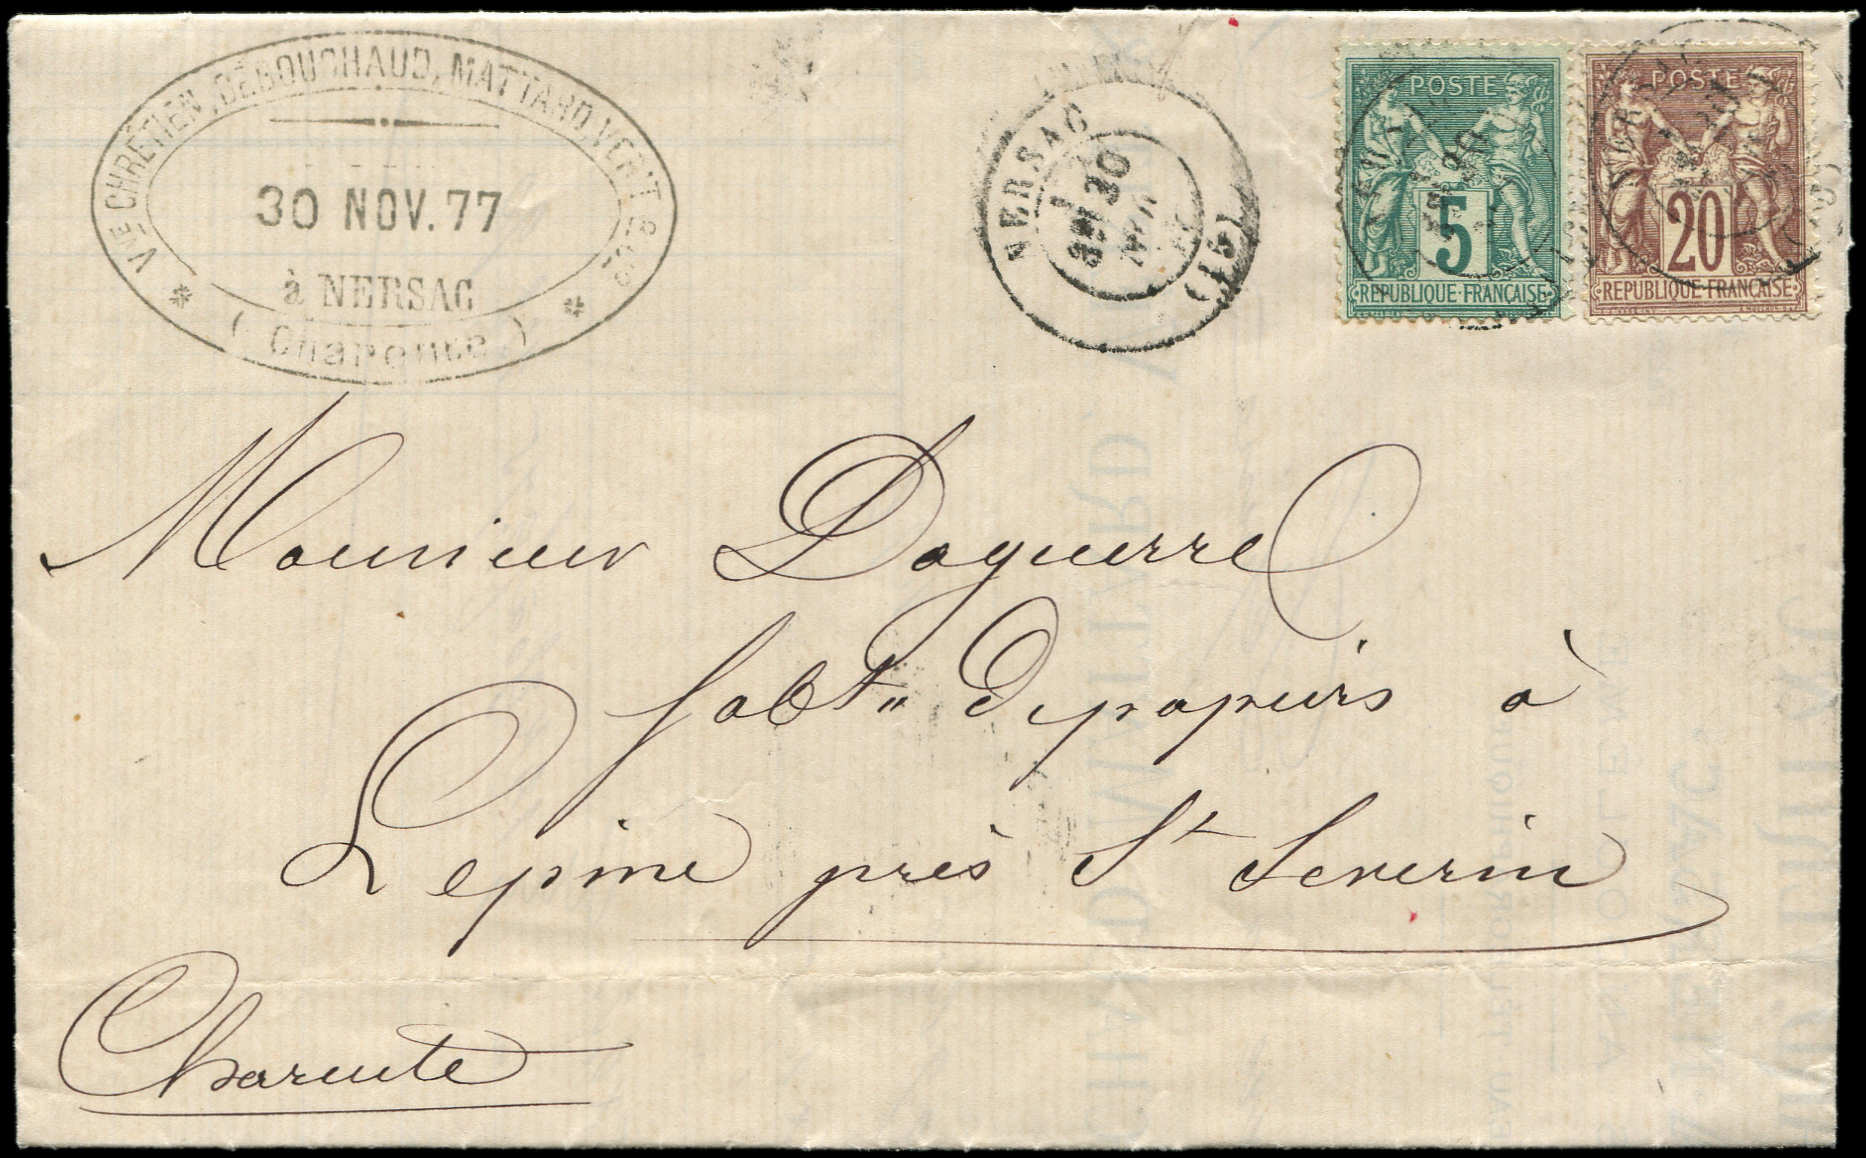 VVE CHRÉTIEN, DÉBOUCHAUD, MATTARD, VERIT & CIE
30 NOV. 77
à NERSAC
(Charente)
NERSAC
30
NOV
(15)
POSTE
5
REPUBLIQUE FRANÇAISE
POSTE
20
REPUBLIQUE FRANÇAISE
Monsieur Daguerre
fabt. de papiers à
Lepine près St Severin
Charente